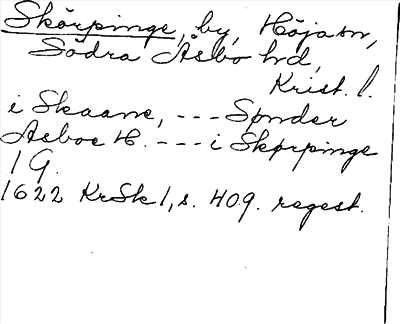 Skörpinge, by, Höja sn,
Södra Åsbo hrd,
Krist. l.
i Skaane, --- Sønder
Asboe H. --- i Skørpinge
1 G.
1622 KrSk 1, s. 409. regest.